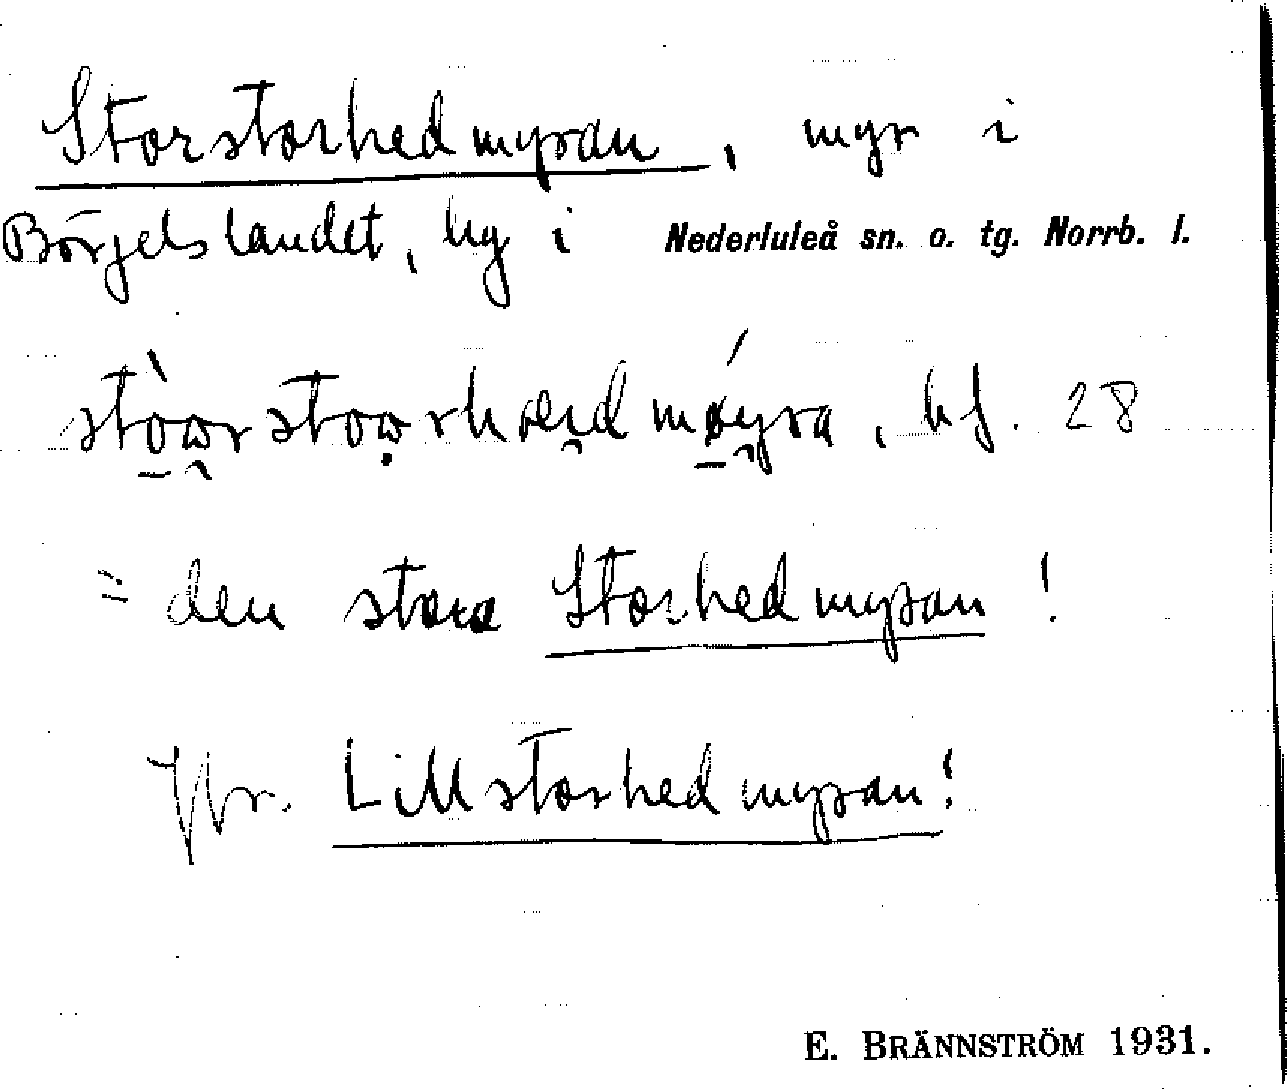 Storstorhedmyran, myr i
Börjelslandet, by i Nederluleå sn. o. tg. Norrb. l.
bf. 28
= den stora Storhedmyran!
Jfr. Lillstorhedmyran!
E. BRÄNNSTRÖM 1931.